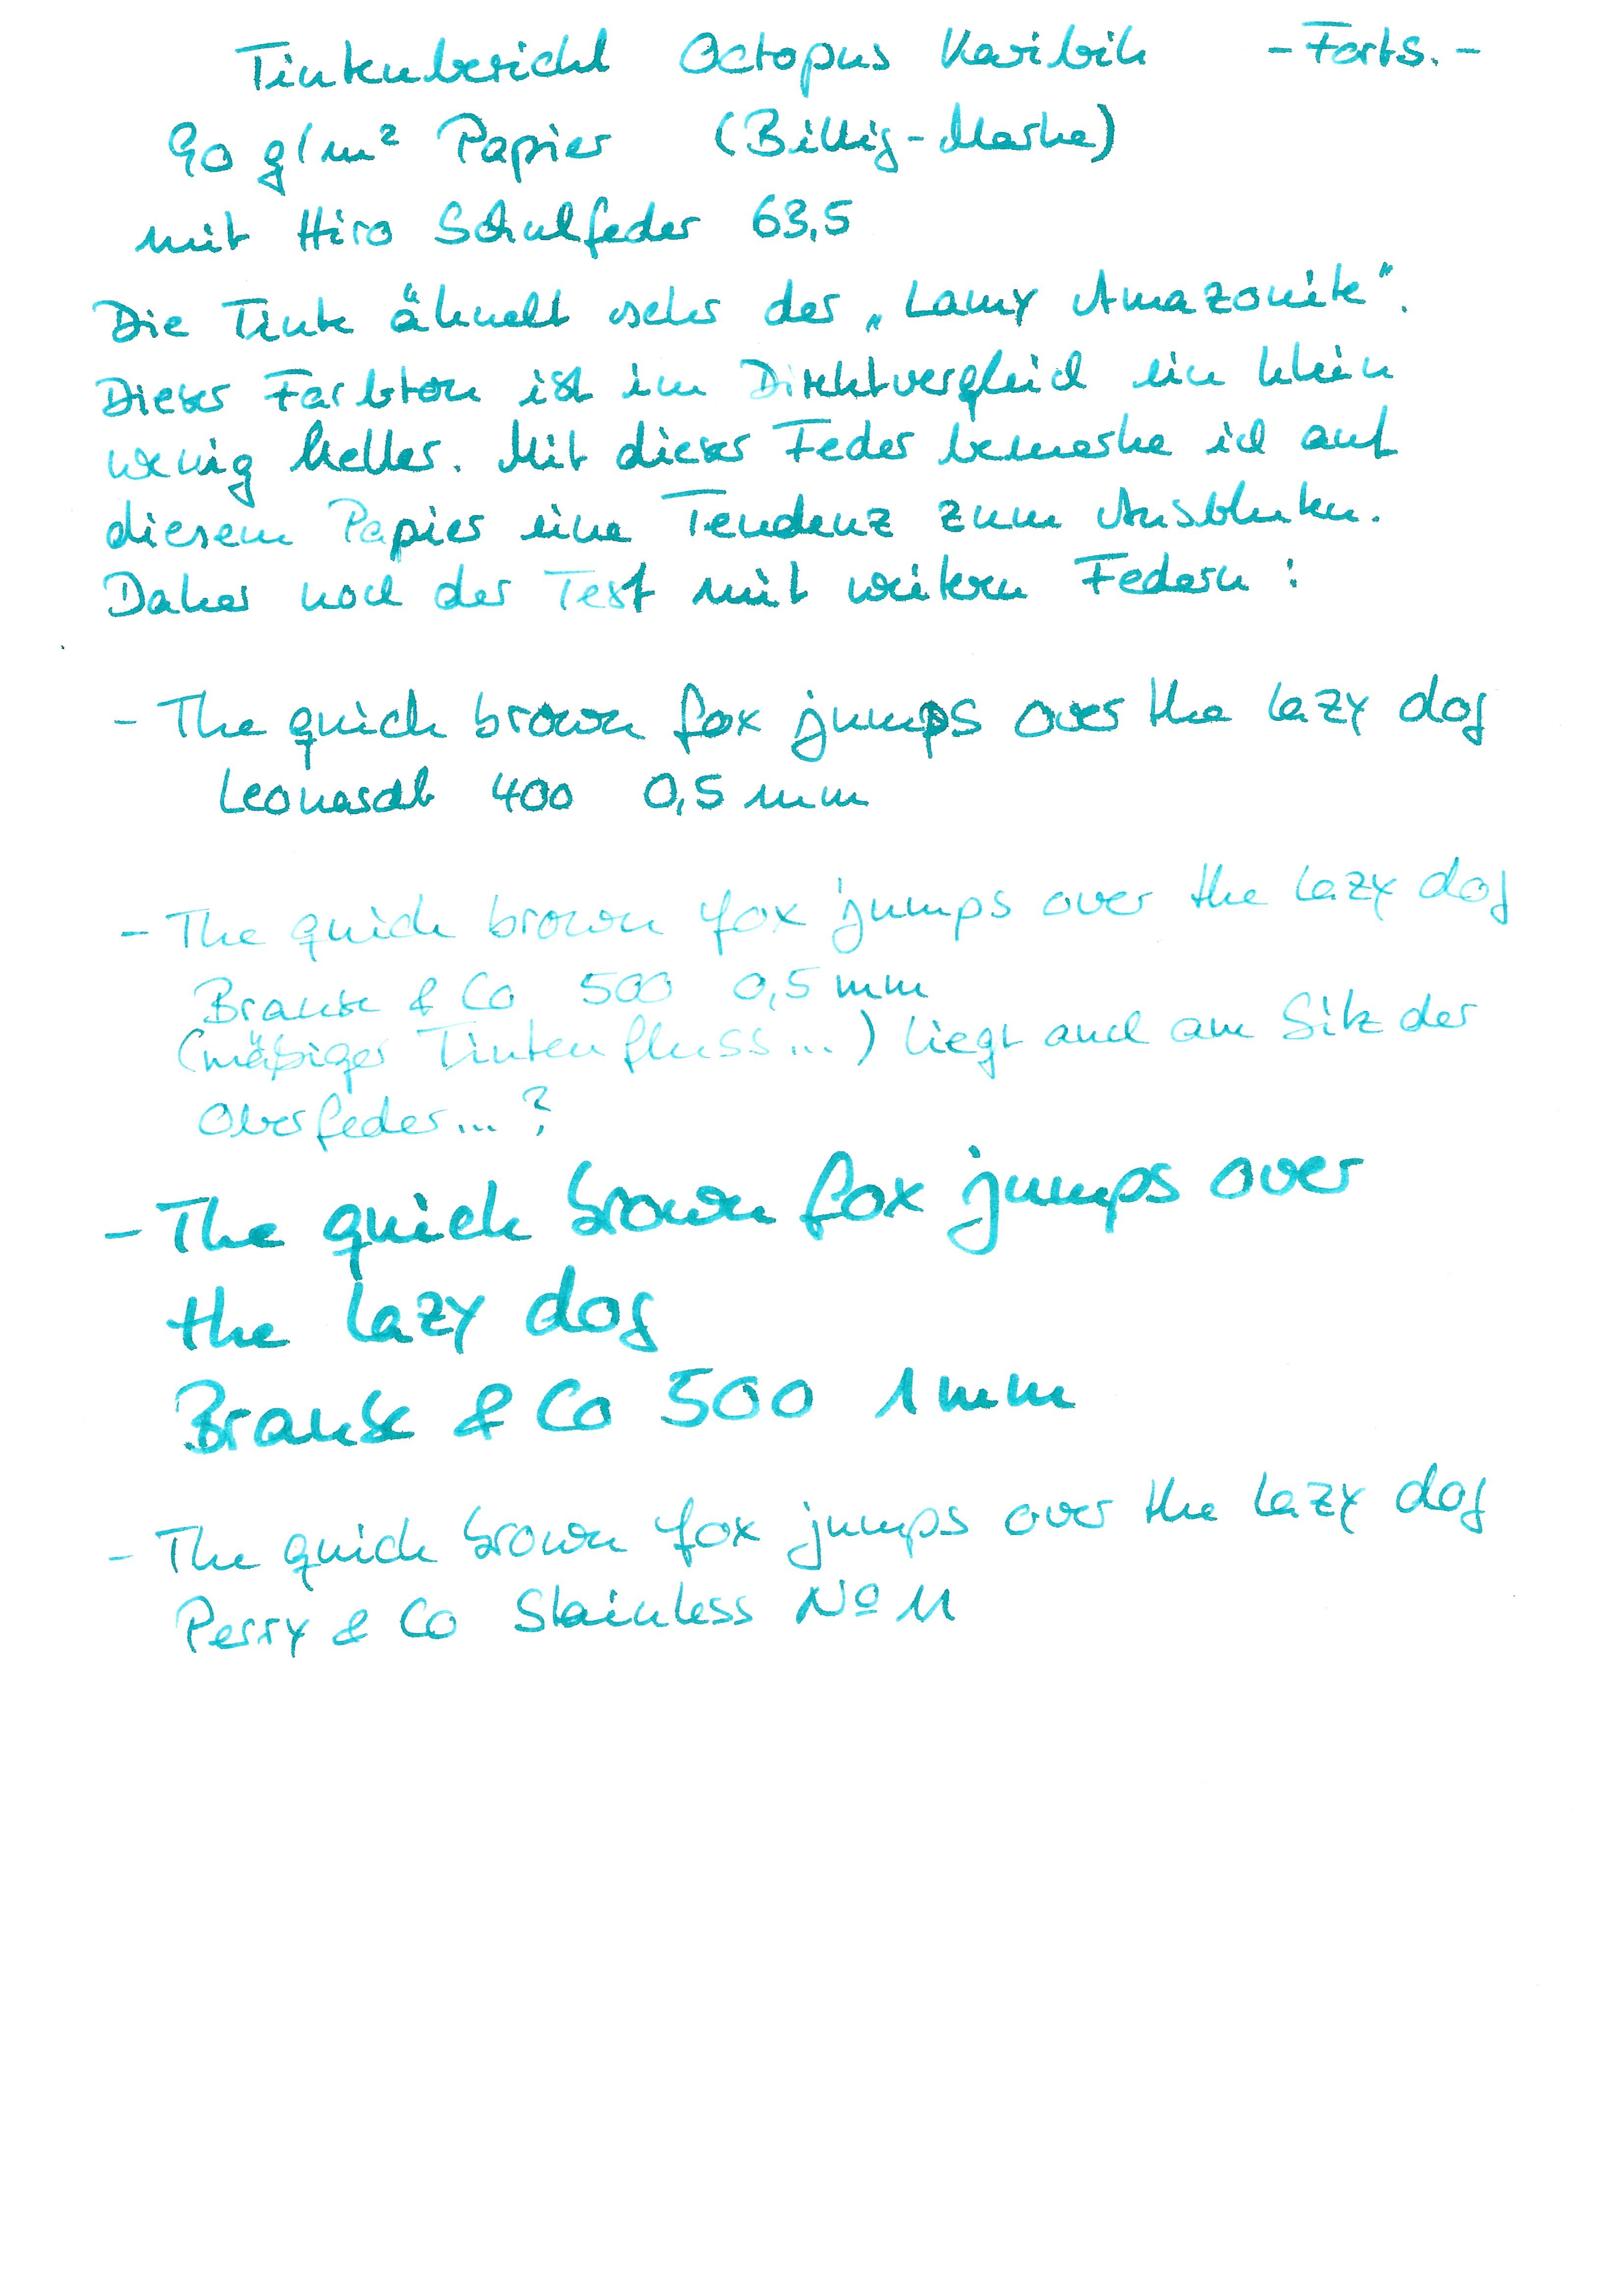 Tintenbericht Octopus Karibik - Forts. -
90 g/m² Papier (Billig-Marke)
mit Hiro Schulfeder 63,5
Die Tinte ähnelt sehr der „Lamy Amazonite".
Dieser Farbton ist im Direktvergleich ein klein
wenig heller. Mit dieser Feder bemerke ich auf
diesem Papier eine Tendenz zum Ausbluten.
Daher noch der Test mit weitern Federn:
- The quick brown fox jumps over the lazy dog
Leonardt 400 0,5 mm
- The quick brown fox jumps over the lazy dog
Brause & Co 500 0,5 mm
(mäßiger Tintenfluss...) liegt auch am Sitz der
Oberfeder...?
- The quick brown fox jumps over
the lazy dog
Brause & Co 500 1mm
- The quick brown fox jumps over the lazy dog
Perry & Co Stainless Nº 11